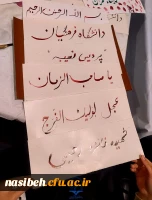 بسم الله الرحمن الرحیم
دانشگاه فرهنگیان
"پردیس نسیبه"
یا صاحب الزمان
عجل لولیک الفرج
شهیده
nasibeh.cfu.ac.ir